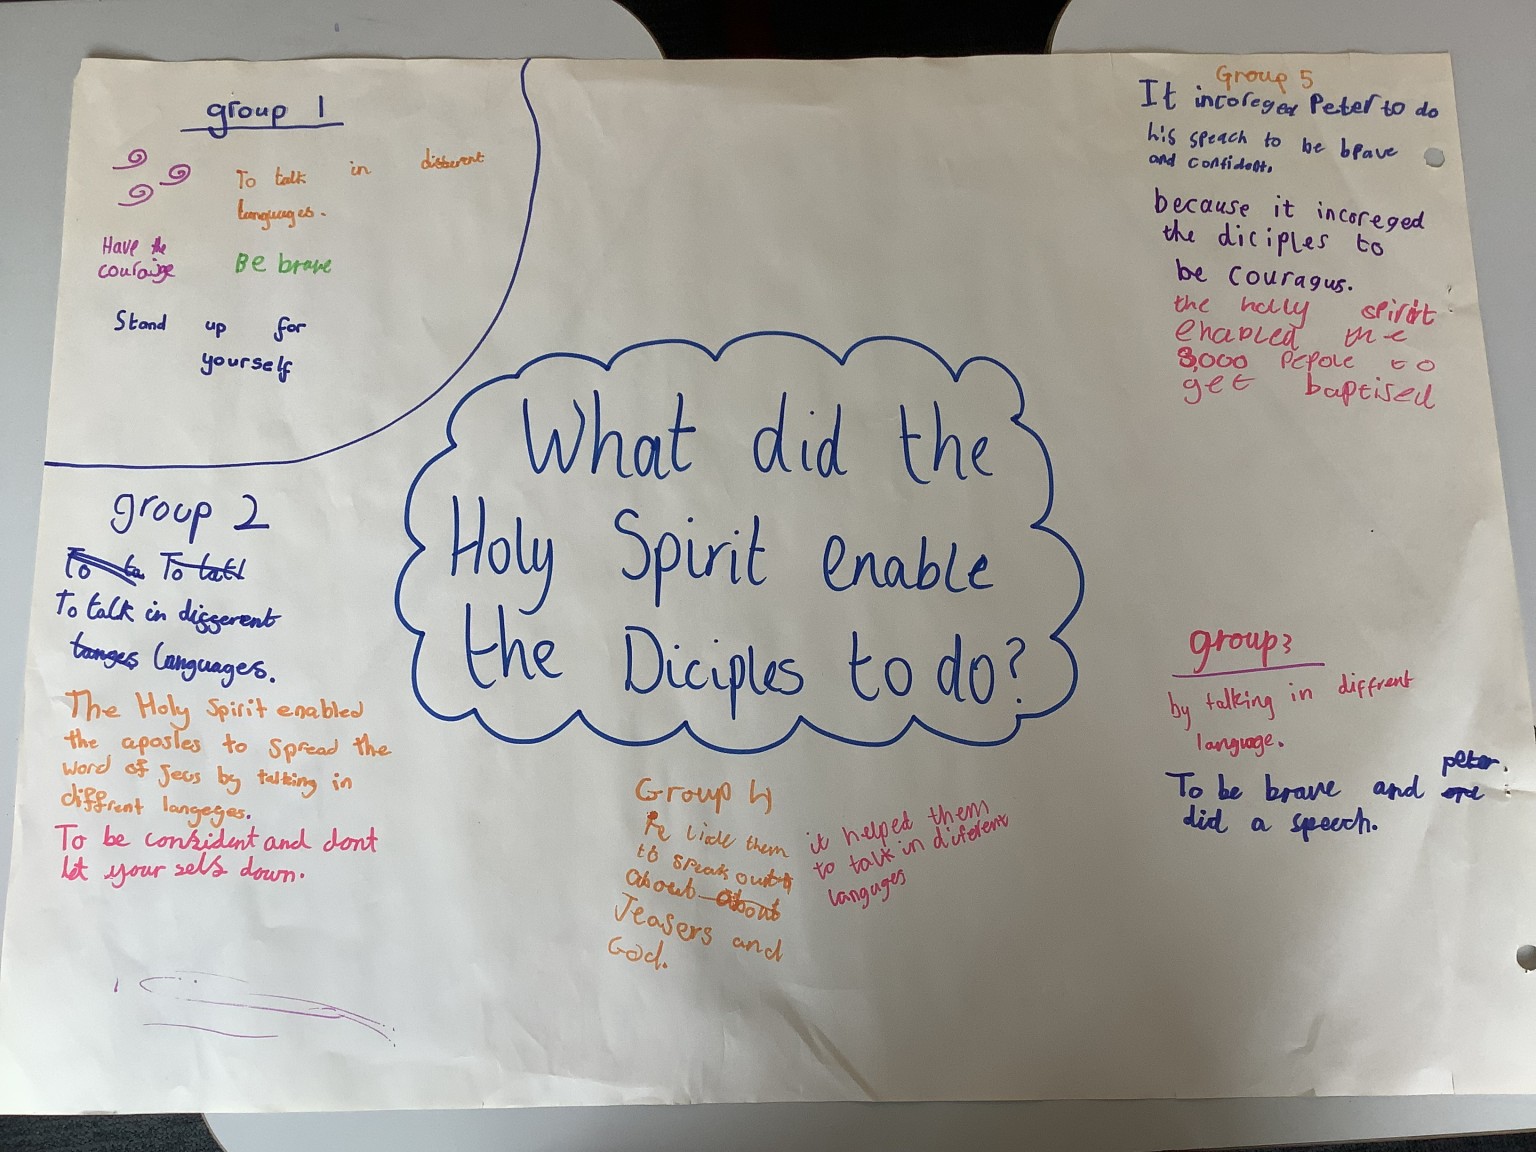 group 1
To talk in different
languages.
Have the
couraige
Be brave
Stand up for
yourself
What did the
Holy Spirit enable
the Diciples to do?
group 2
To ta To tatl
To talk in different
langes languages.
The Holy Spirit enabled
the aposles to spread the
word of Jecus by talking in
diffrent langeges.
To be confident and dont
let your self down.
Group 4
to speak out
about about
Jeasers and
God.
it helped them
to talk in diferent
languges
Group 5
It incoreged Peter to do
his speach to be brave
and confident.
because it incoreged
the diciples to
be couragus.
the holly spirit
enabled the
3,000 pepole to
get baptised
group 3
by talking in diffrent
language.
peter
To be brave and one
did a speech.